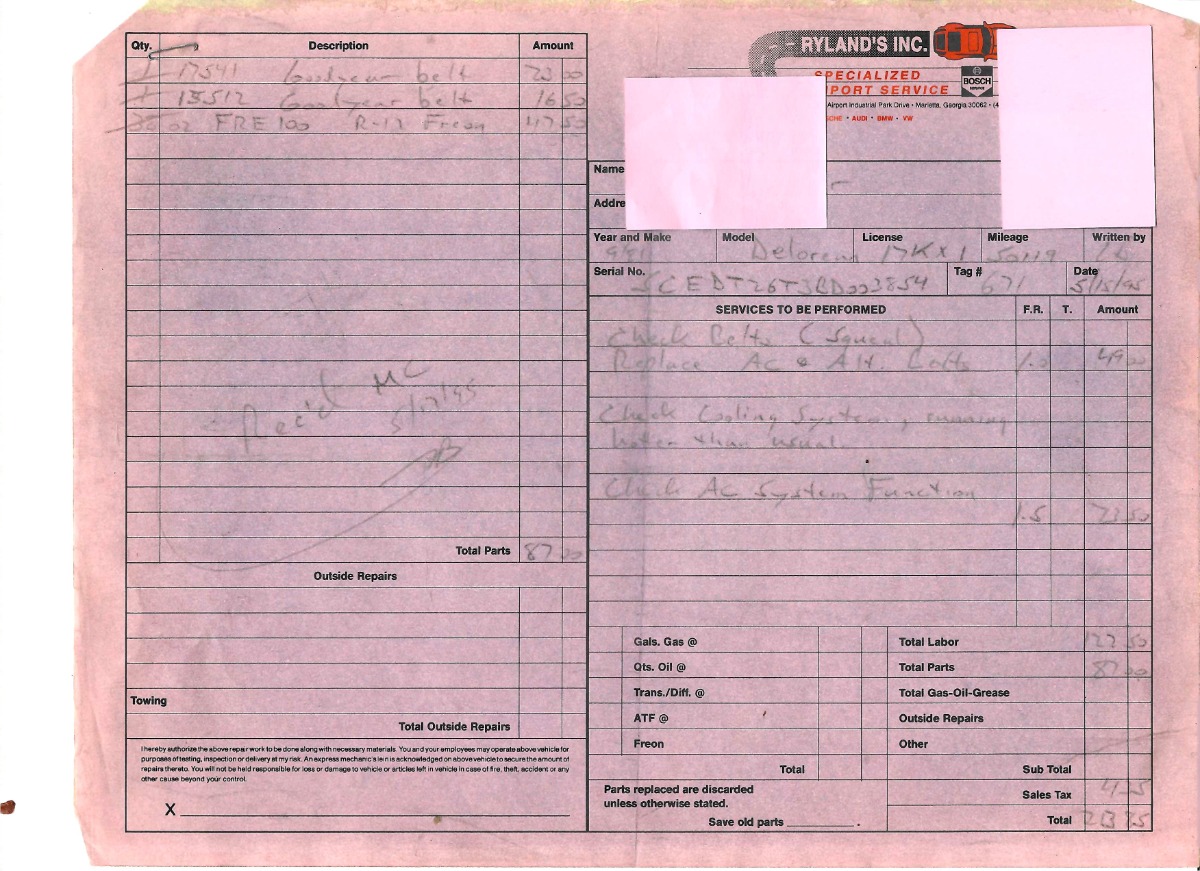 Qty. Description Amount
1 17541 Goodyear belt 23 00
1 15512 Goodyear belt 16 50
FRE 100 R-12 Freon 47 50
Rec'd MC
5/17/95
Total Parts 87 00
Outside Repairs
Towing
Total Outside Repairs
I hereby authorize the above repair work to be done along with necessary materials. You and your employees may operate above vehicle for
purposes of testing, inspection or delivery at my risk. An express mechanic's lein is acknowledged on above vehicle to secure the amount of
repairs thereto. You will not be held responsible for loss or damage to vehicle or articles left in vehicle in case of fire, theft, accident or any
other cause beyond your control.
X
RYLAND'S INC.
SPECIALIZED
PORT SERVICE
BOSCH
SERVICE
Airport Industrial Park Drive • Marietta, Georgia 30062 • (4
CHE • AUDI • BMW • VW
Name
Addre
Year and Make Model License Mileage Written by
981 Delorean 17K×1 50119
Serial No. Tag # Date
SCEDT26T3BD003854 671 5/15/95
SERVICES TO BE PERFORMED F.R. T. Amount
Check Belts (Squeal)
Replace AC & Alt. belts 1.0 49 00
Check Cooling System, running
hotter than usual.
Check AC System Function
1.5 73 50
Gals. Gas @ Total Labor 122 50
Qts. Oil @ Total Parts 87 00
Trans./Diff. @ Total Gas-Oil-Grease
ATF @ Outside Repairs
Freon Other
Total Sub Total
Parts replaced are discarded
unless otherwise stated.
Sales Tax 4 35
Save old parts ______ . Total 213 85